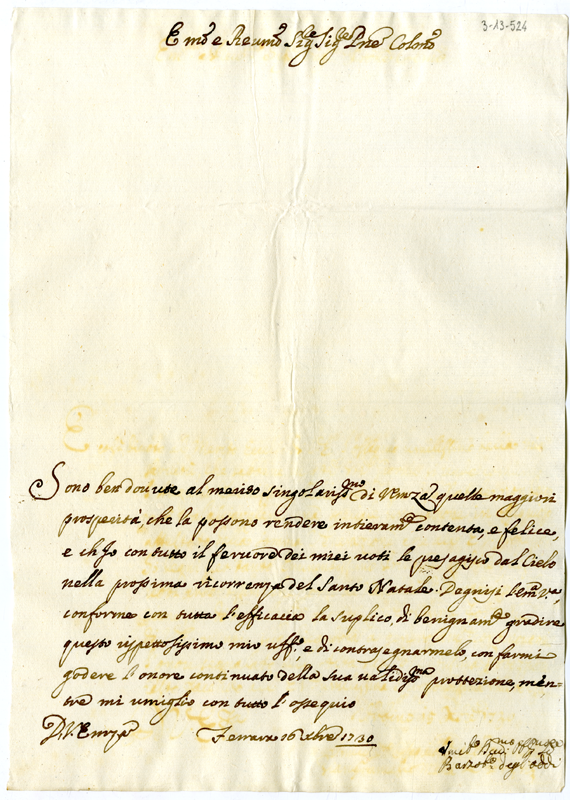 3-13-524
Emo e Reumo Sigre Sigre Pne Colmo
Sono ben douute al merito singolarissmo di VEmza quelle maggiori
prosperità, che la possono rendere intieramte contenta, e felice,
e ch'Io con tutto il feruore dei miei uoti le presagisco dal Cielo
nella prossima ricorrenza del Santo Natale. Degnisi l'Emza Vra,
conforme con tutta l'efficacia la suplico, di benignamte gradire
questo rispettosissimo mio uffo, e di contrasegnarmelo, con farmi
godere l'onore continuato della sua validissma protezione, men=
tre mi umiglio con tutto l'ossequio
D. V. Emza
Ferrara 16 Xbre 1730
Umilo
degl'Oddi